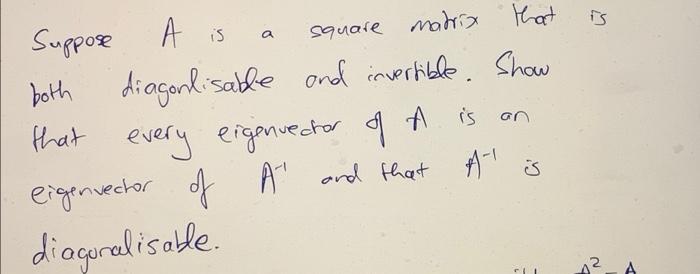 Suppose A is a square matrix that is
both diagonlisable and invertible. Show
that every eigenvector of A is an
eigenvector of A⁻¹ and that A⁻¹ is
diagonalisable.
A² - A